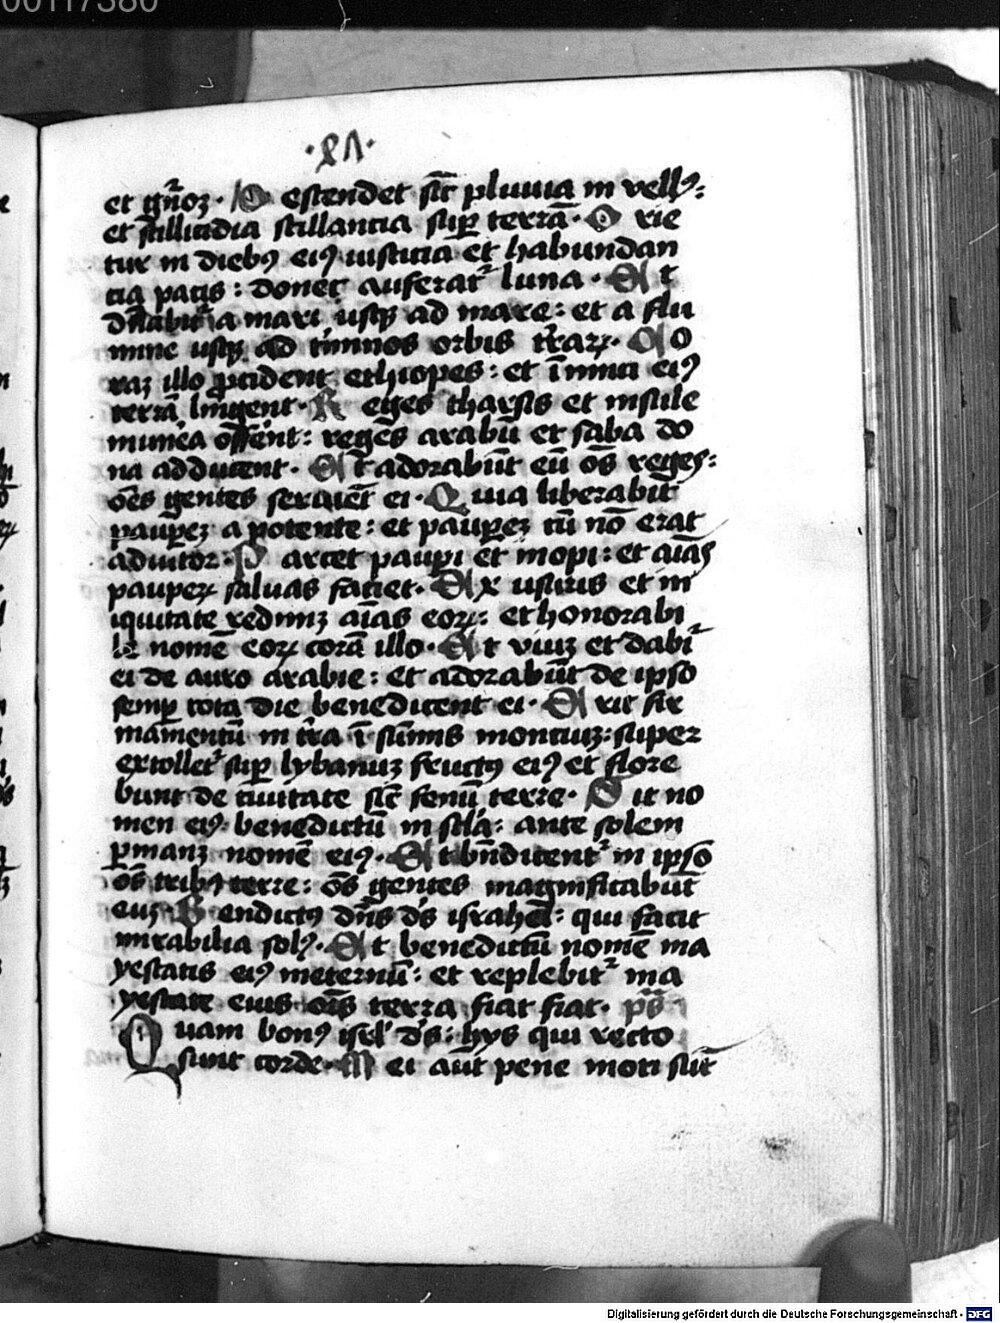 00117380
et gn̄oꝝ. D estendet sic̄ pluuia in vellꝰ:
et stillicidia stillantia sup̱ terrā. O rie
tur in diebꝰ eiꝰ iusticia et habundan
tia pacis: donec auferat᷑ luna. Et
dn̄abit᷑ a mari usqꝫ ad mare: et a flu
mine usqꝫ ad t̄minos orbis t̄raꝝ. Co
raꝫ illo ꝓcident ethiopes: et īimici eiꝰ
terrā lingent. R eges tharsis et insule
mun̄ea offerēt: reges arabū et saba do
na adducent. Et adorabūt eū oēs reges:
oēs gentes seruiēt ei. Q uia liberabit
paup̱eꝫ a potente: et paup̱eꝫ cū nō erat
adiutor. P arcet paup̱i et inopi: et aīas
pauperꝝ saluas faciet. Ex usuris et in
iquitate redimꝫ aīas eoꝝ: et honorabi
le nomē eoꝝ corā illo. Et viuꝫ et dabit᷑
ei de auro arabie: et adorabūt de ipso
semp̱ tota die benedicent ei. E rit fir
mamentū in t̄ra ī sūmis montiuꝫ: super
extollet᷑ sup̱ lybanuꝫ fructꝰ eiꝰ et flore
bunt de ciuitate sic̄ fenū terre. S it no
men eiꝰ benedictū in sc̄la: ante solem
p̱manꝫ nomē eiꝰ. Et bn̄dicent᷑ in ipso
oēs tribꝰ terre: oēs gentes magnificabūt
euꝫ B endictꝰ dn̄s ds̄ israhel: qui facit
mirabilia solꝰ. Et benedictū nomē ma
yestatis eiꝰ ineternū: et replebit᷑ ma
yestate eius oīs terra fiat fiat. ps̄
Quam bonꝰ isrl̄ ds̄: hys qui recto
sunt corde. M ei aūt pene moti sūt
Digitalisierung gefördert durch die Deutsche Forschungsgemeinschaft - DFG